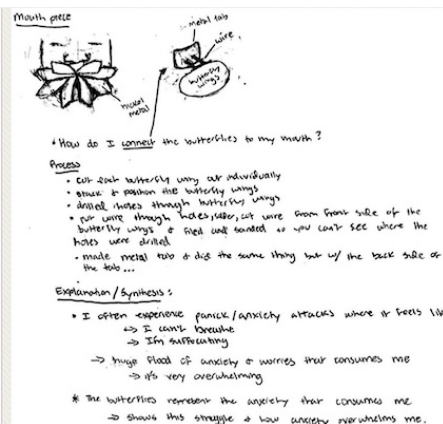 Mouth piece
metal tab
wire
butterfly wings
nickel metal
* How do I connect the butterflies to my mouth?
Process
• cut each butterfly wing out individually
• stack & position the butterfly wings
• drilled holes through butterfly wings
• put wire through holes, solder, cut wire from front side of the
butterfly wings & filed and sanded so you can't see where the
holes were drilled
• made metal tab & did the same thing but w/ the back side of
the tab...
Explanation/Synthesis:
• I often experience panick/anxiety attacks where it feels like
↳ I can't breathe
→ I'm suffocating
→ huge flood of anxiety & worries that consumes me
→ it's very overwhelming
* The butterflies represent the anxiety that consumes me
→ shows this struggle & how anxiety overwhelms me.